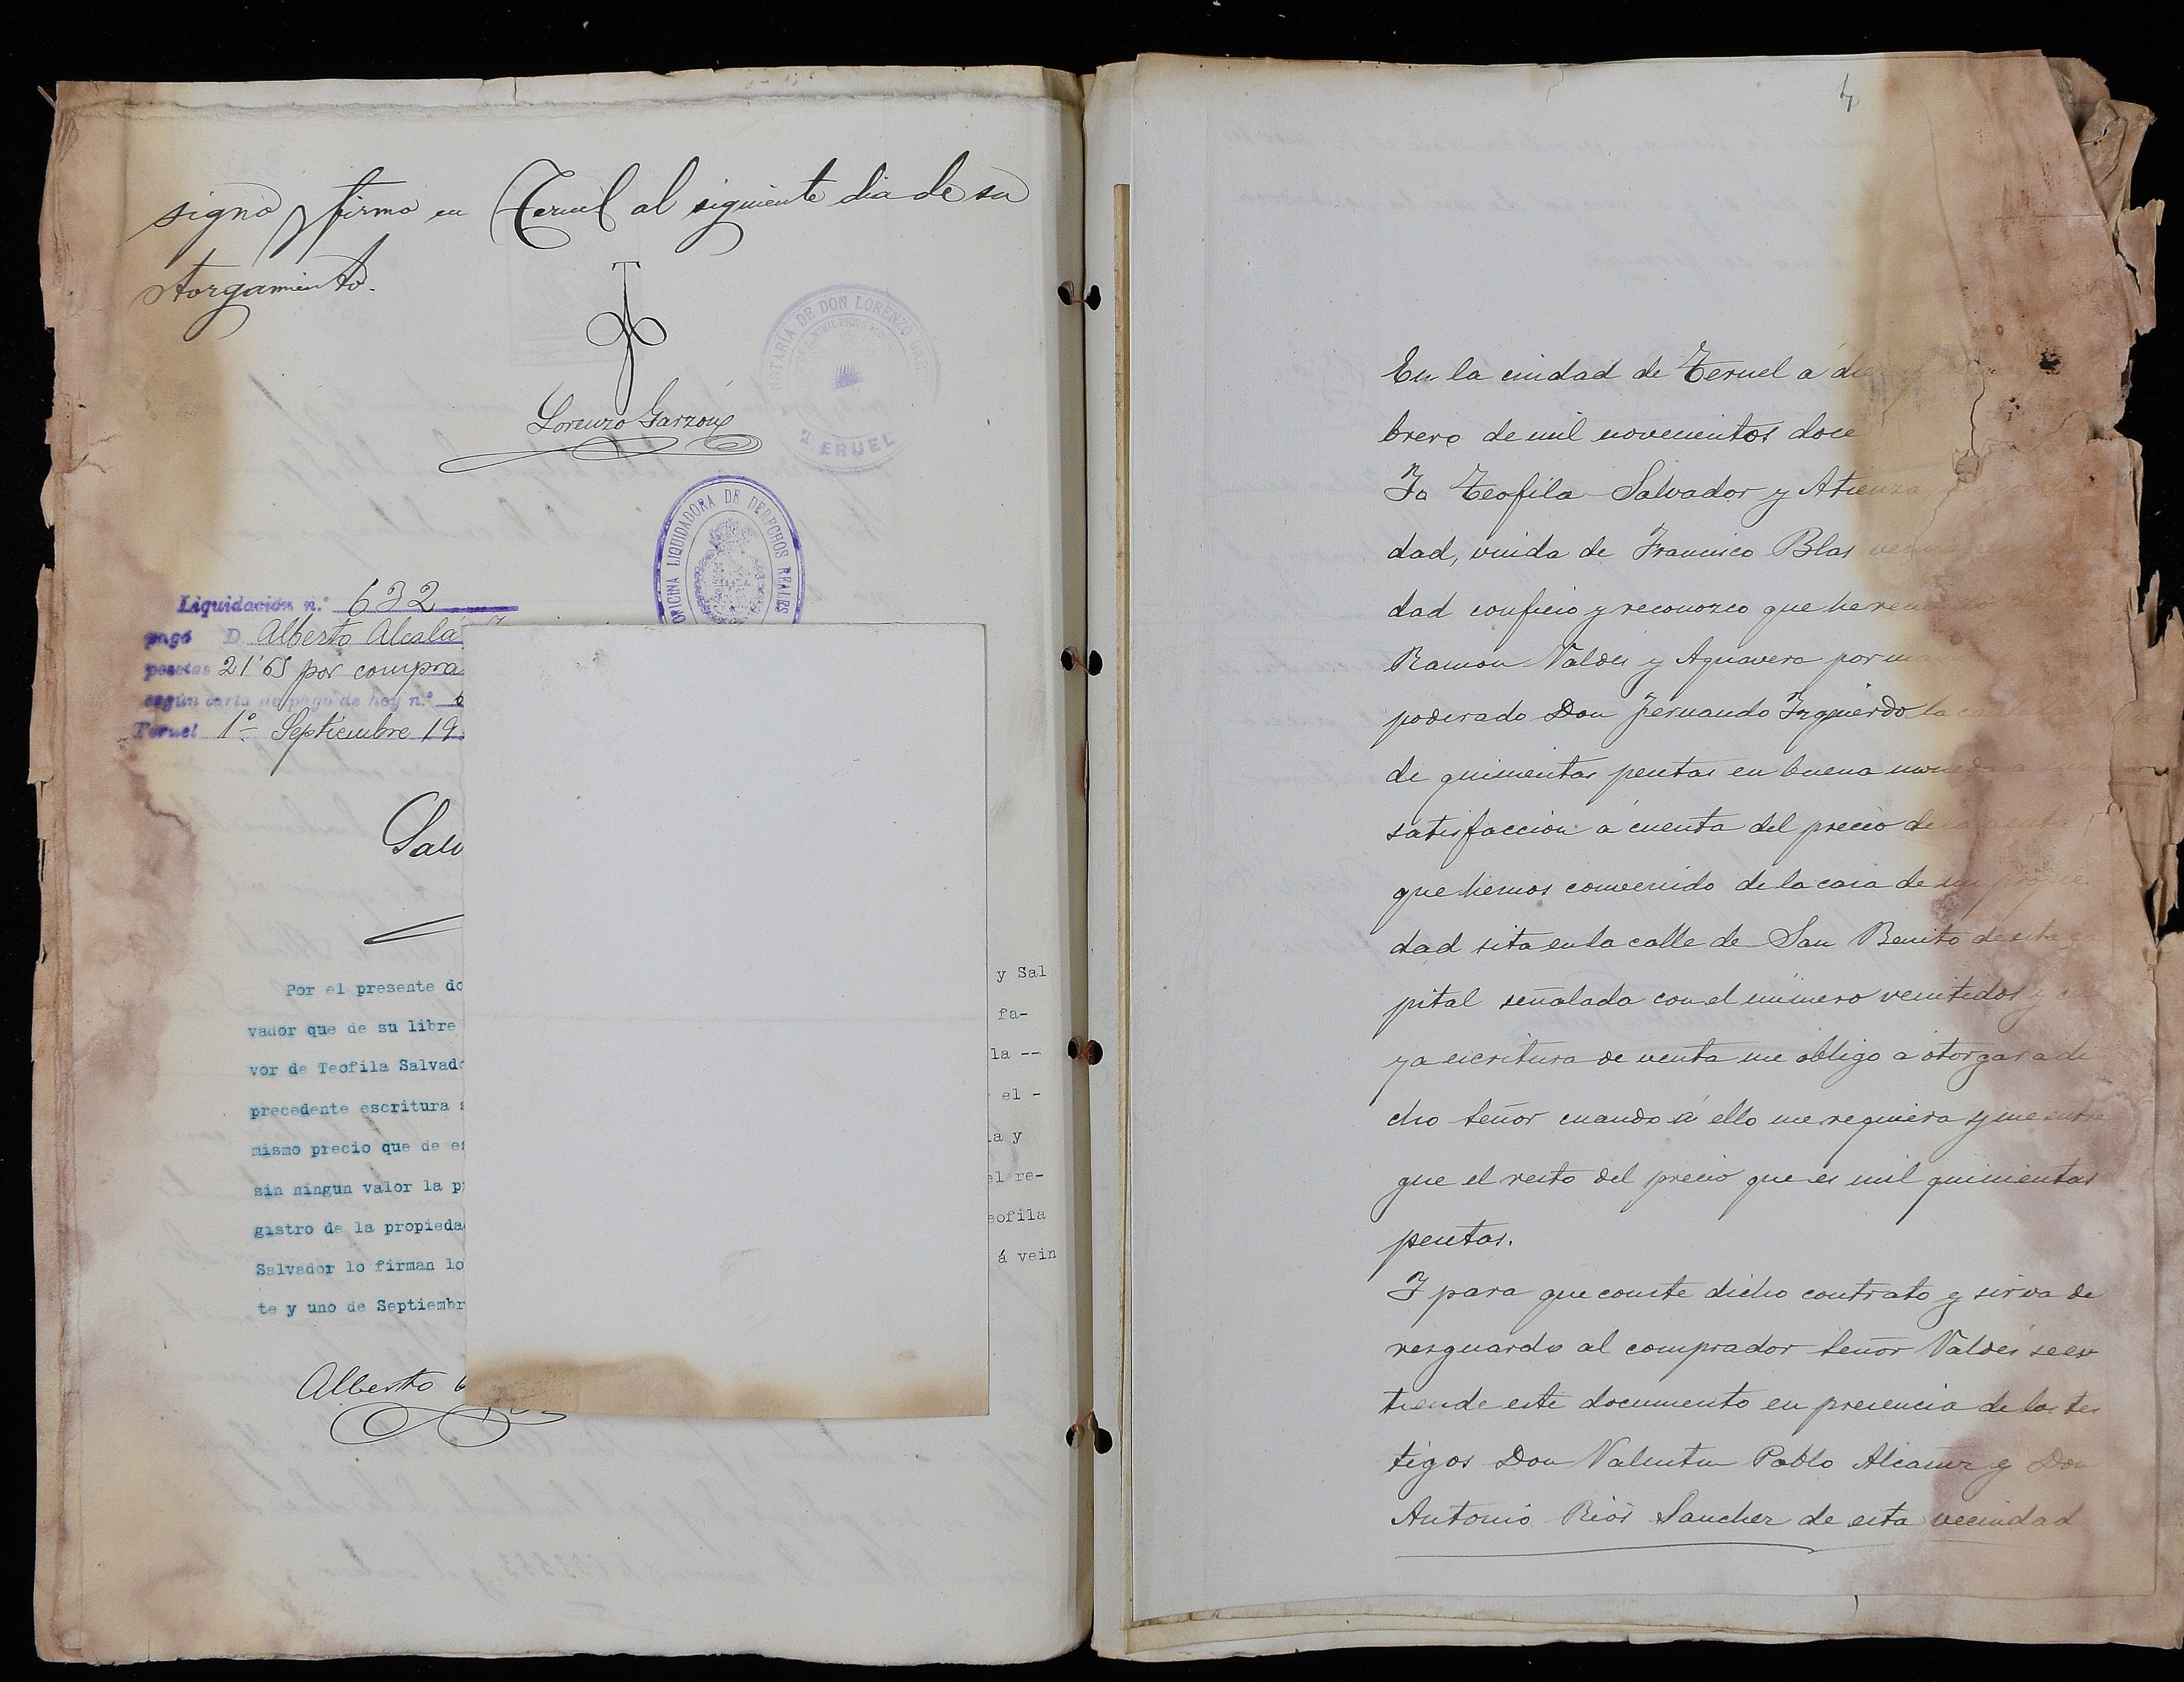 signo y firmo en Teruel al siguiente dia de su
otorgamiento.
NOTARÍA DE DON LORENZO GAR
NIHIL PRIUS FIDE
TERUEL
Lorenzo Garzón
OFICINA LIQUIDADORA DE DERECHOS REALES
Liquidación n.º 632
pagó D. Alberto Alcalá
pesetas 21'65 por compra
según carta de pago de hoy n.º 6
Teruel 1º Septiembre 19
Salv
Por el presente do y Sal
vador que de su libre fa-
vor de Teofila Salvado la --
precedente escritura s el -
mismo precio que de es a y
sin ningun valor la p el re-
gistro de la propieda eofila
Salvador lo firman lo á vein
te y uno de Septiembr
Alberto
4
En la ciudad de Teruel á die
brero de mil novecientos doce
Yo Teofila Salvador y Atienza
dad, viuda de Francisco Blas
dad confieso y reconozco que he
Ramon Valdés y Aguavera por
poderado Don Fernando Izquierdo la
de quinientas pesetas en buena moneda
satisfaccion á cuenta del precio de la
que hemos convenido de la casa de mi propie
dad sita en la calle de San Benito de esta ca
pital señalada con el número veintidos y cu
ya escritura de venta me obligo á otorgar a di
cho señor cuando á ello me requiera y me entre
gue el resto del precio que es mil quinientas
pesetas.
Y para que conste dicho contrato y sirva de
resguardo al comprador señor Valdés se ex
tiende este documento en presencia de los tes
tigos Don Valentin Pablo Alcañiz y Don
Antonio Rios Sanchez de esta vecindad